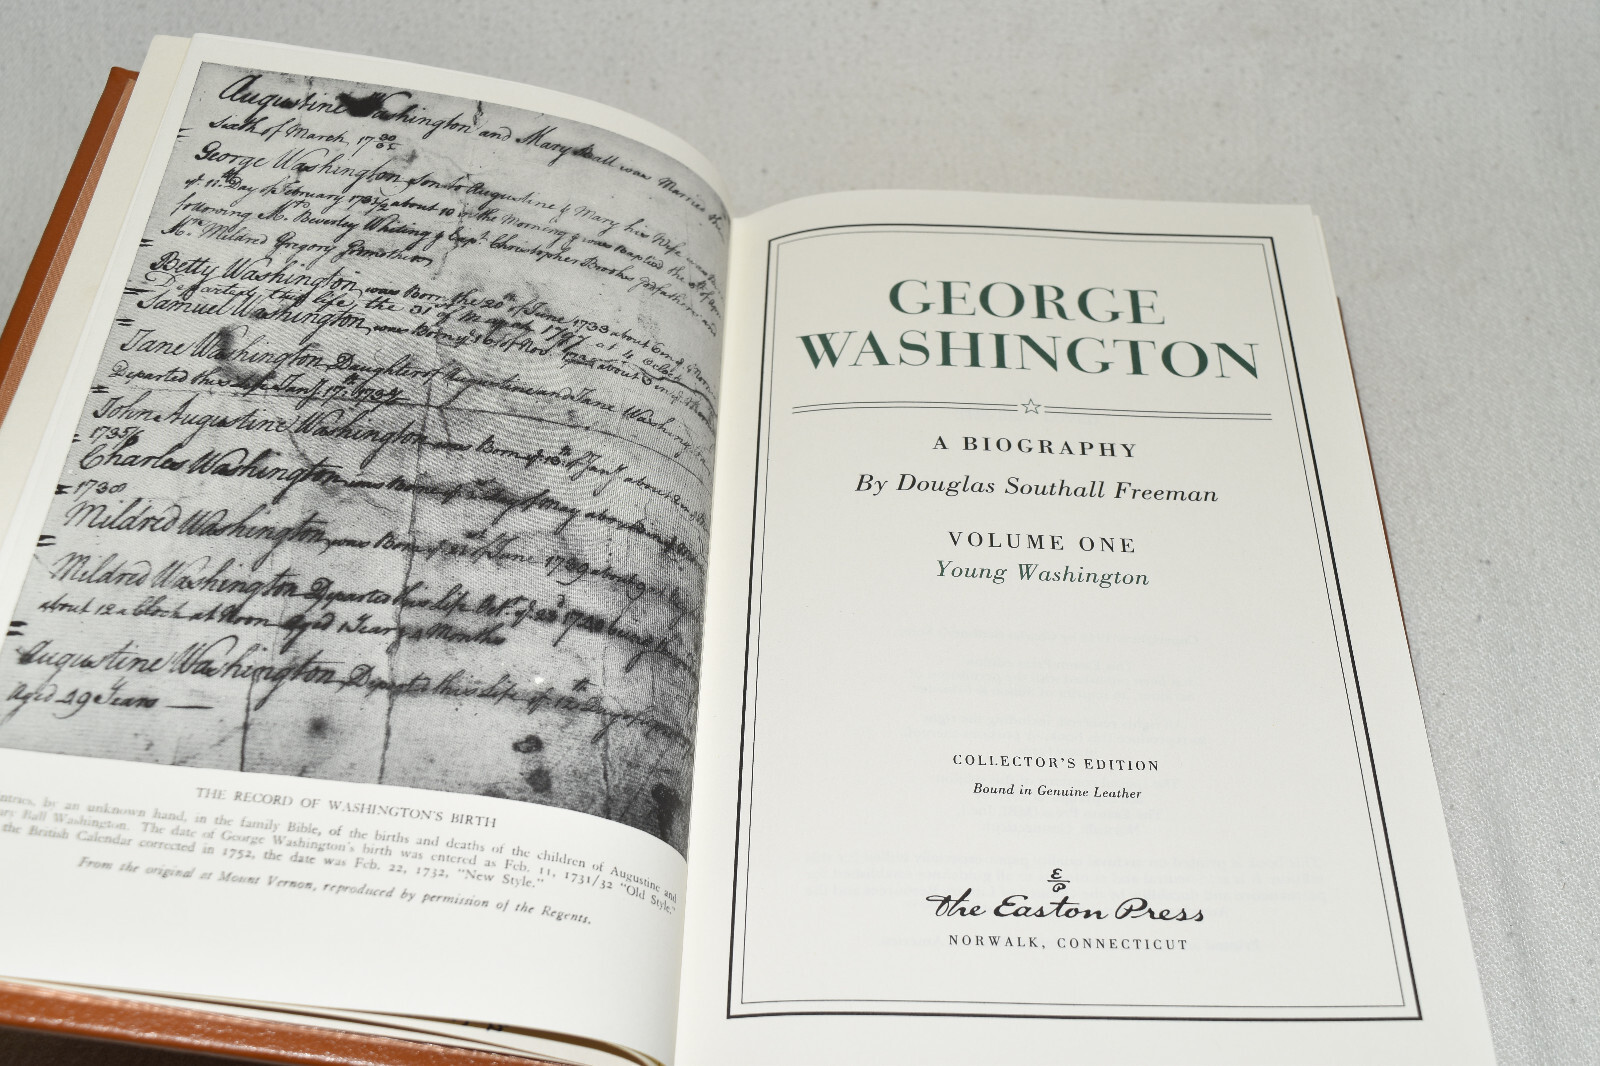 Augustine Washington and Mary Ball was Married the
Sixth of March 17 30/31
George Washington Son to Augustine & Mary his Wife was
ye 11th Day of February 173½ about 10 in the Morning & was Baptised the
following Mr Beverley Whiting & Capt Christopher Brooks godfathers and
Mrs Mildred Gregory Godmother
Betty Washington was Born the 20th of June 1733 about
Departed this life the 31 of March 1797 at 4 oclock
Samuel Washington was Born ye 16 of Nov about
Jane Washington Daughter of Augustine and Jane Washington
Departed this Life Jany 17th 1734/5
John Augustine Washington was Born ye of Jany about
1735/6
Charles Washington was Borne ye Day of May about
1738
Mildred Washington was Born ye 21st of June 1739 about 9
Mildred Washington Departed this Life Octr ye 23d 1740 being
about 12 a Clock at Noon Aged 1 Year & 4 Months
Augustine Washington Departed this Life ye 12th Day of
Aged 49 Years
THE RECORD OF WASHINGTON'S BIRTH
ntries, by an unknown hand, in the family Bible, of the births and deaths of the children of Augustine and
ary Ball Washington. The date of George Washington's birth was entered as Feb. 11, 1731/32 "Old Style."
the British Calendar corrected in 1752, the date was Feb. 22, 1732, "New Style."
From the original at Mount Vernon, reproduced by permission of the Regents.
GEORGE
WASHINGTON
A BIOGRAPHY
By Douglas Southall Freeman
VOLUME ONE
Young Washington
COLLECTOR'S EDITION
Bound in Genuine Leather
E
P
The Easton Press
NORWALK, CONNECTICUT